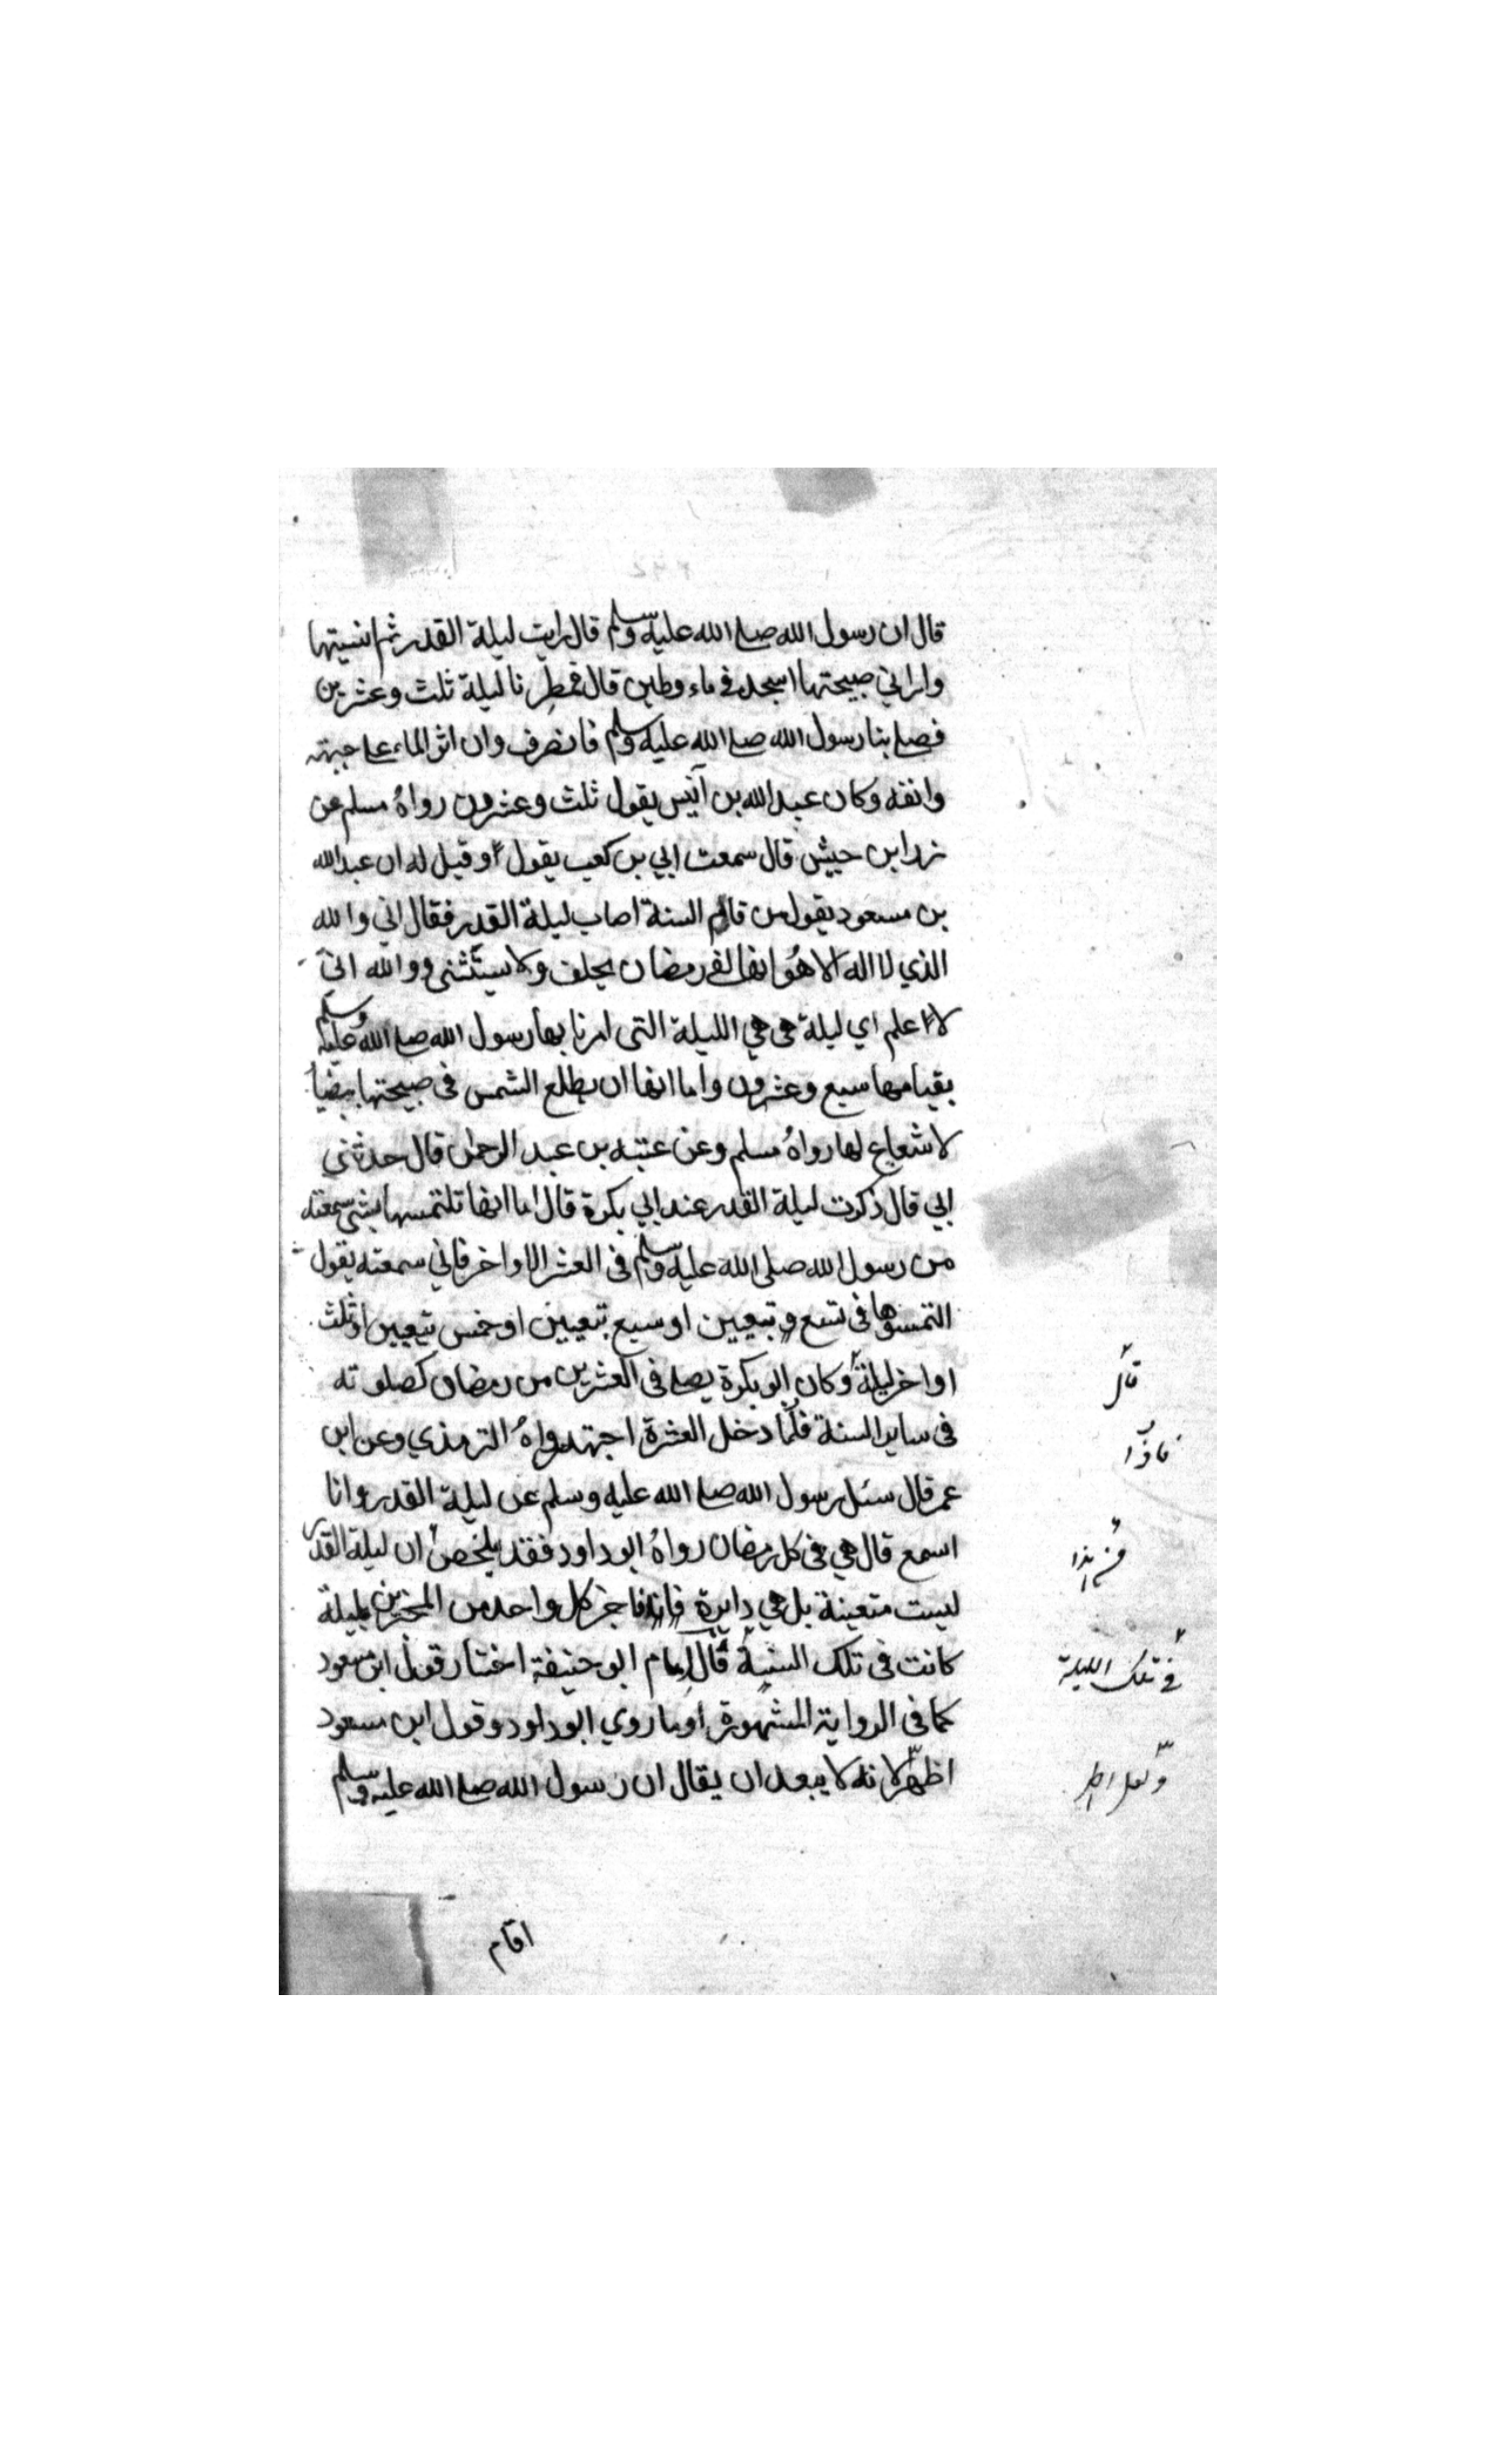 قال ان رسول الله صلے الله عليه وسلم قال رايت ليلة القدر ثم انسيتها
واراني صبيحتها اسجد فى ماء وطين قال فمطرنا ليلة ثلث وعشرين
فصلے بنا رسول الله صلے الله عليه وسلم فانصرف وان اثر الماء على جبهته
وانفه وكان عبد الله بن أنيس يقول ثلث وعشرون رواهُ مسلم عن
زر ابن حبيش قال سمعت ابي بن كعب يقول وقيل له ان عبد الله
بن مسعود يقول من قام السنة اصاب ليلة القدر فقال اني والله
الذي لا اله الا هُو انها لفى رمضان يحلف ولا يستثنى ووالله اني
لا اعلم اي ليلة هى هي الليلة التى امرنا بها رسول الله صلے الله عليه وسلم
بقيامها سبع وعشرون واما انها ان يطلع الشمس فى صبيحتها بيضاء
لا شعاع لها رواهُ مسلم وعن عتبه بن عبد الرحمن قال حدثني
ابي قال ذكرت ليلة القدر عند ابي بكرة قال اما انها تلتمسها بشئ سمعته
من رسول الله صلى الله عليه وسلم فى العشر الاواخر فاني سمعته يقول
التمسوها فى تسع يتبعين او سبع يتبعين او خمس يتبعين او ثلث
اواخر ليلة وكان ابو بكرة يصلے فى العشرين من رمضان كصلوته
قال
فى ساير السنة فلما دخل العشرة اجتهد رواهُ الترمذي وعن ابن
فاذا
عمر قال سئل رسول الله صلے الله عليه وسلم عن ليلة القدر وانا
اسمع قال هي فى كل رمضان رواهُ ابو داود فقد يلخص ان ليلة القدر
ليست متعينة بل هي دايرة فاخبر كل واحد من المخبرين بليلة
كانت فى تلك السنة قال امام ابو حنيفة اختار قول ابن مسعود
فى تلك الليلة
كما فى الرواية المشهورة او ما روي ابو داود وقول ابن مسعود
اظهر لانه لا يبعد ان يقال ان رسول الله صلے الله عليه وسلم
اقام